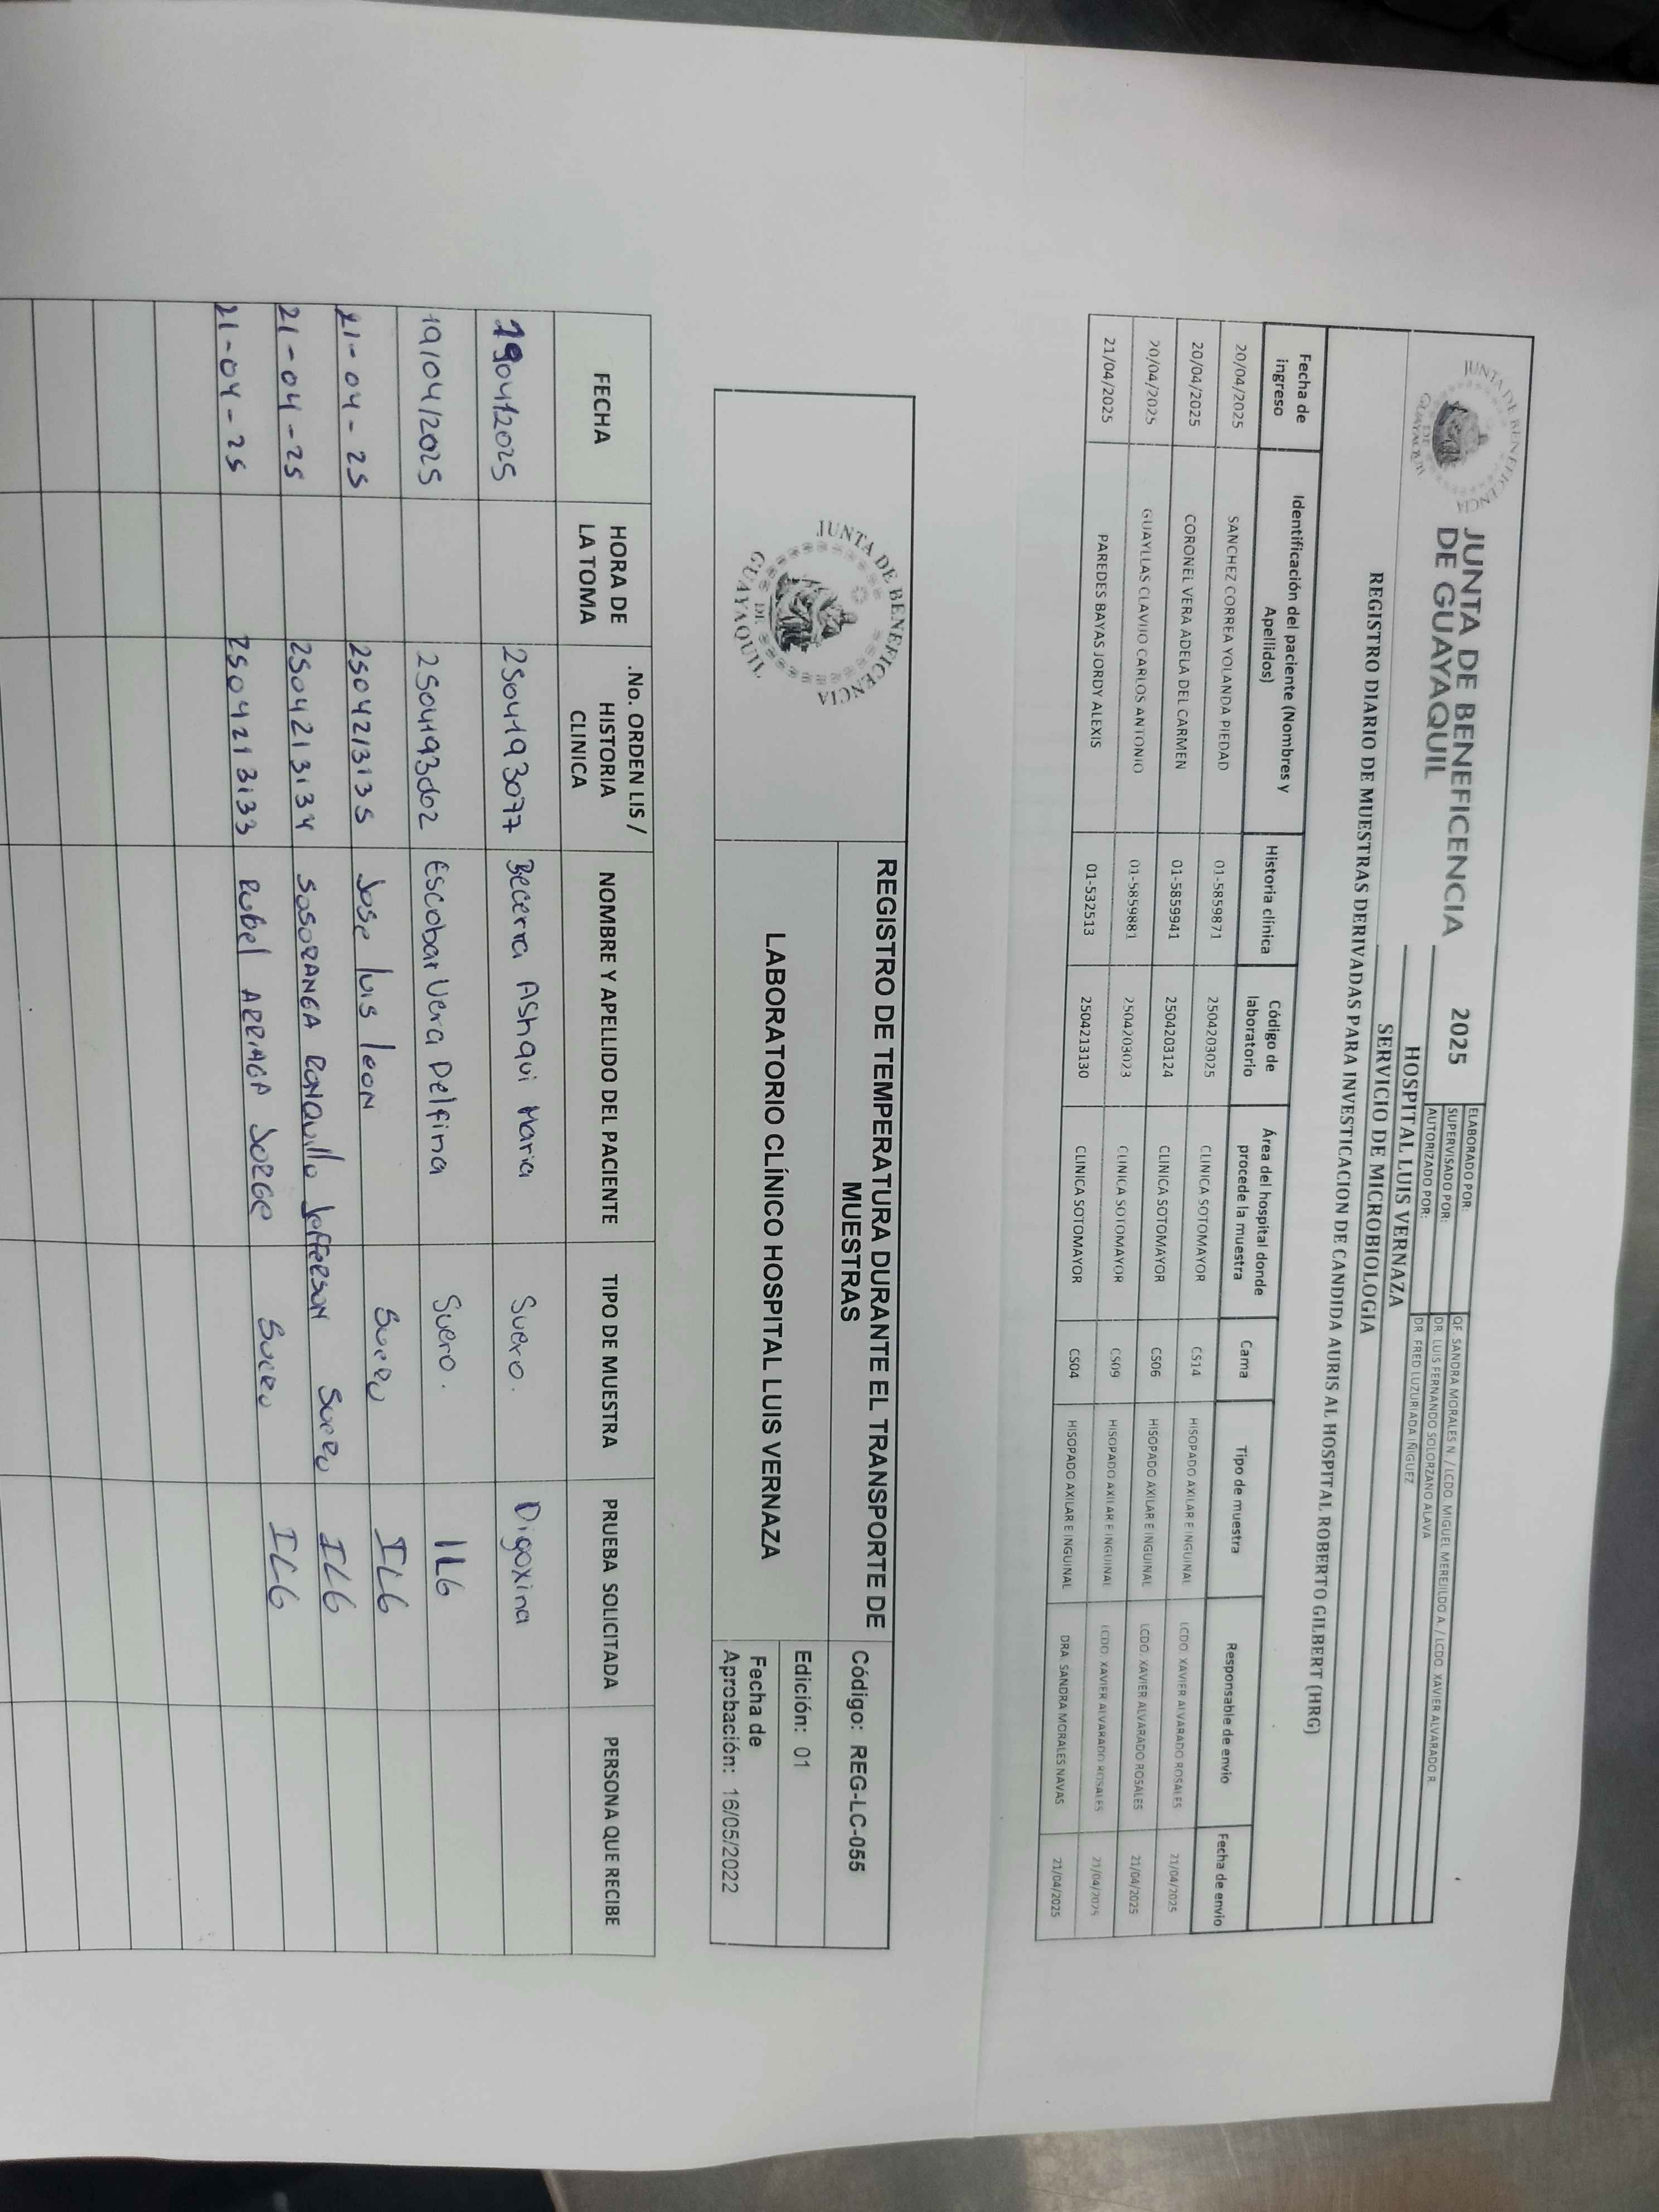 JUNTA DE BENEFICENCIA DE GUAYAQUIL
JUNTA DE BENEFICENCIA
DE GUAYAQUIL
2025
ELABORADO POR: QF SANDRA MORALES N. / LCDO. MIGUEL MEREJILDO A. / LCDO. XAVIER ALVARADO R.
SUPERVISADO POR: DR. LUIS FERNANDO SOLORZANO ALAVA
AUTORIZADO POR: DR. FRED LUZURIADA IÑIGUEZ
HOSPITAL LUIS VERNAZA
SERVICIO DE MICROBIOLOGIA
REGISTRO DIARIO DE MUESTRAS DERIVADAS PARA INVESTIGACION DE CANDIDA AURIS AL HOSPITAL ROBERTO GILBERT (HRG)
Fecha de ingreso Identificación del paciente (Nombres y Apellidos) Historia clínica Código de laboratorio Área del hospital donde procede la muestra Cama Tipo de muestra Responsable de envio Fecha de envio
20/04/2025 SANCHEZ CORREA YOLANDA PIEDAD 01-5859871 2504203025 CLINICA SOTOMAYOR CS14 HISOPADO AXILAR E INGUINAL LCDO. XAVIER ALVARADO ROSALES 21/04/2025
20/04/2025 CORONEL VERA ADELA DEL CARMEN 01-5859941 2504203124 CLINICA SOTOMAYOR CS06 HISOPADO AXILAR E INGUINAL LCDO. XAVIER ALVARADO ROSALES 21/04/2025
20/04/2025 GUAYLLAS CLAVIJO CARLOS ANTONIO 01-5859881 2504203023 CLINICA SOTOMAYOR CS09 HISOPADO AXILAR E INGUINAL LCDO. XAVIER ALVARADO ROSALES 21/04/2025
21/04/2025 PAREDES BAYAS JORDY ALEXIS 01-532513 2504213130 CLINICA SOTOMAYOR CS04 HISOPADO AXILAR E INGUINAL DRA. SANDRA MORALES NAVAS 21/04/2025
JUNTA DE BENEFICENCIA DE GUAYAQUIL
REGISTRO DE TEMPERATURA DURANTE EL TRANSPORTE DE
MUESTRAS
LABORATORIO CLÍNICO HOSPITAL LUIS VERNAZA
Código: REG-LC-055
Edición: 01
Fecha de
Aprobación: 16/05/2022
FECHA HORA DE LA TOMA .No. ORDEN LIS / HISTORIA CLINICA NOMBRE Y APELLIDO DEL PACIENTE TIPO DE MUESTRA PRUEBA SOLICITADA PERSONA QUE RECIBE
19/04/2025 2504193077 Becerra Ashqui Maria Suero. Digoxina
19/04/2025 2504193002 Escobar Vera Delfina Suero. IL6
21-04-25 2504213135 Jose luis leon Suero IL6
21-04-25 2504213134 SOSORANGA RONQuillo Jefferson Suero IL6
21-04-25 2504213133 Rubel ARRIAGA JORGE Suero IL6